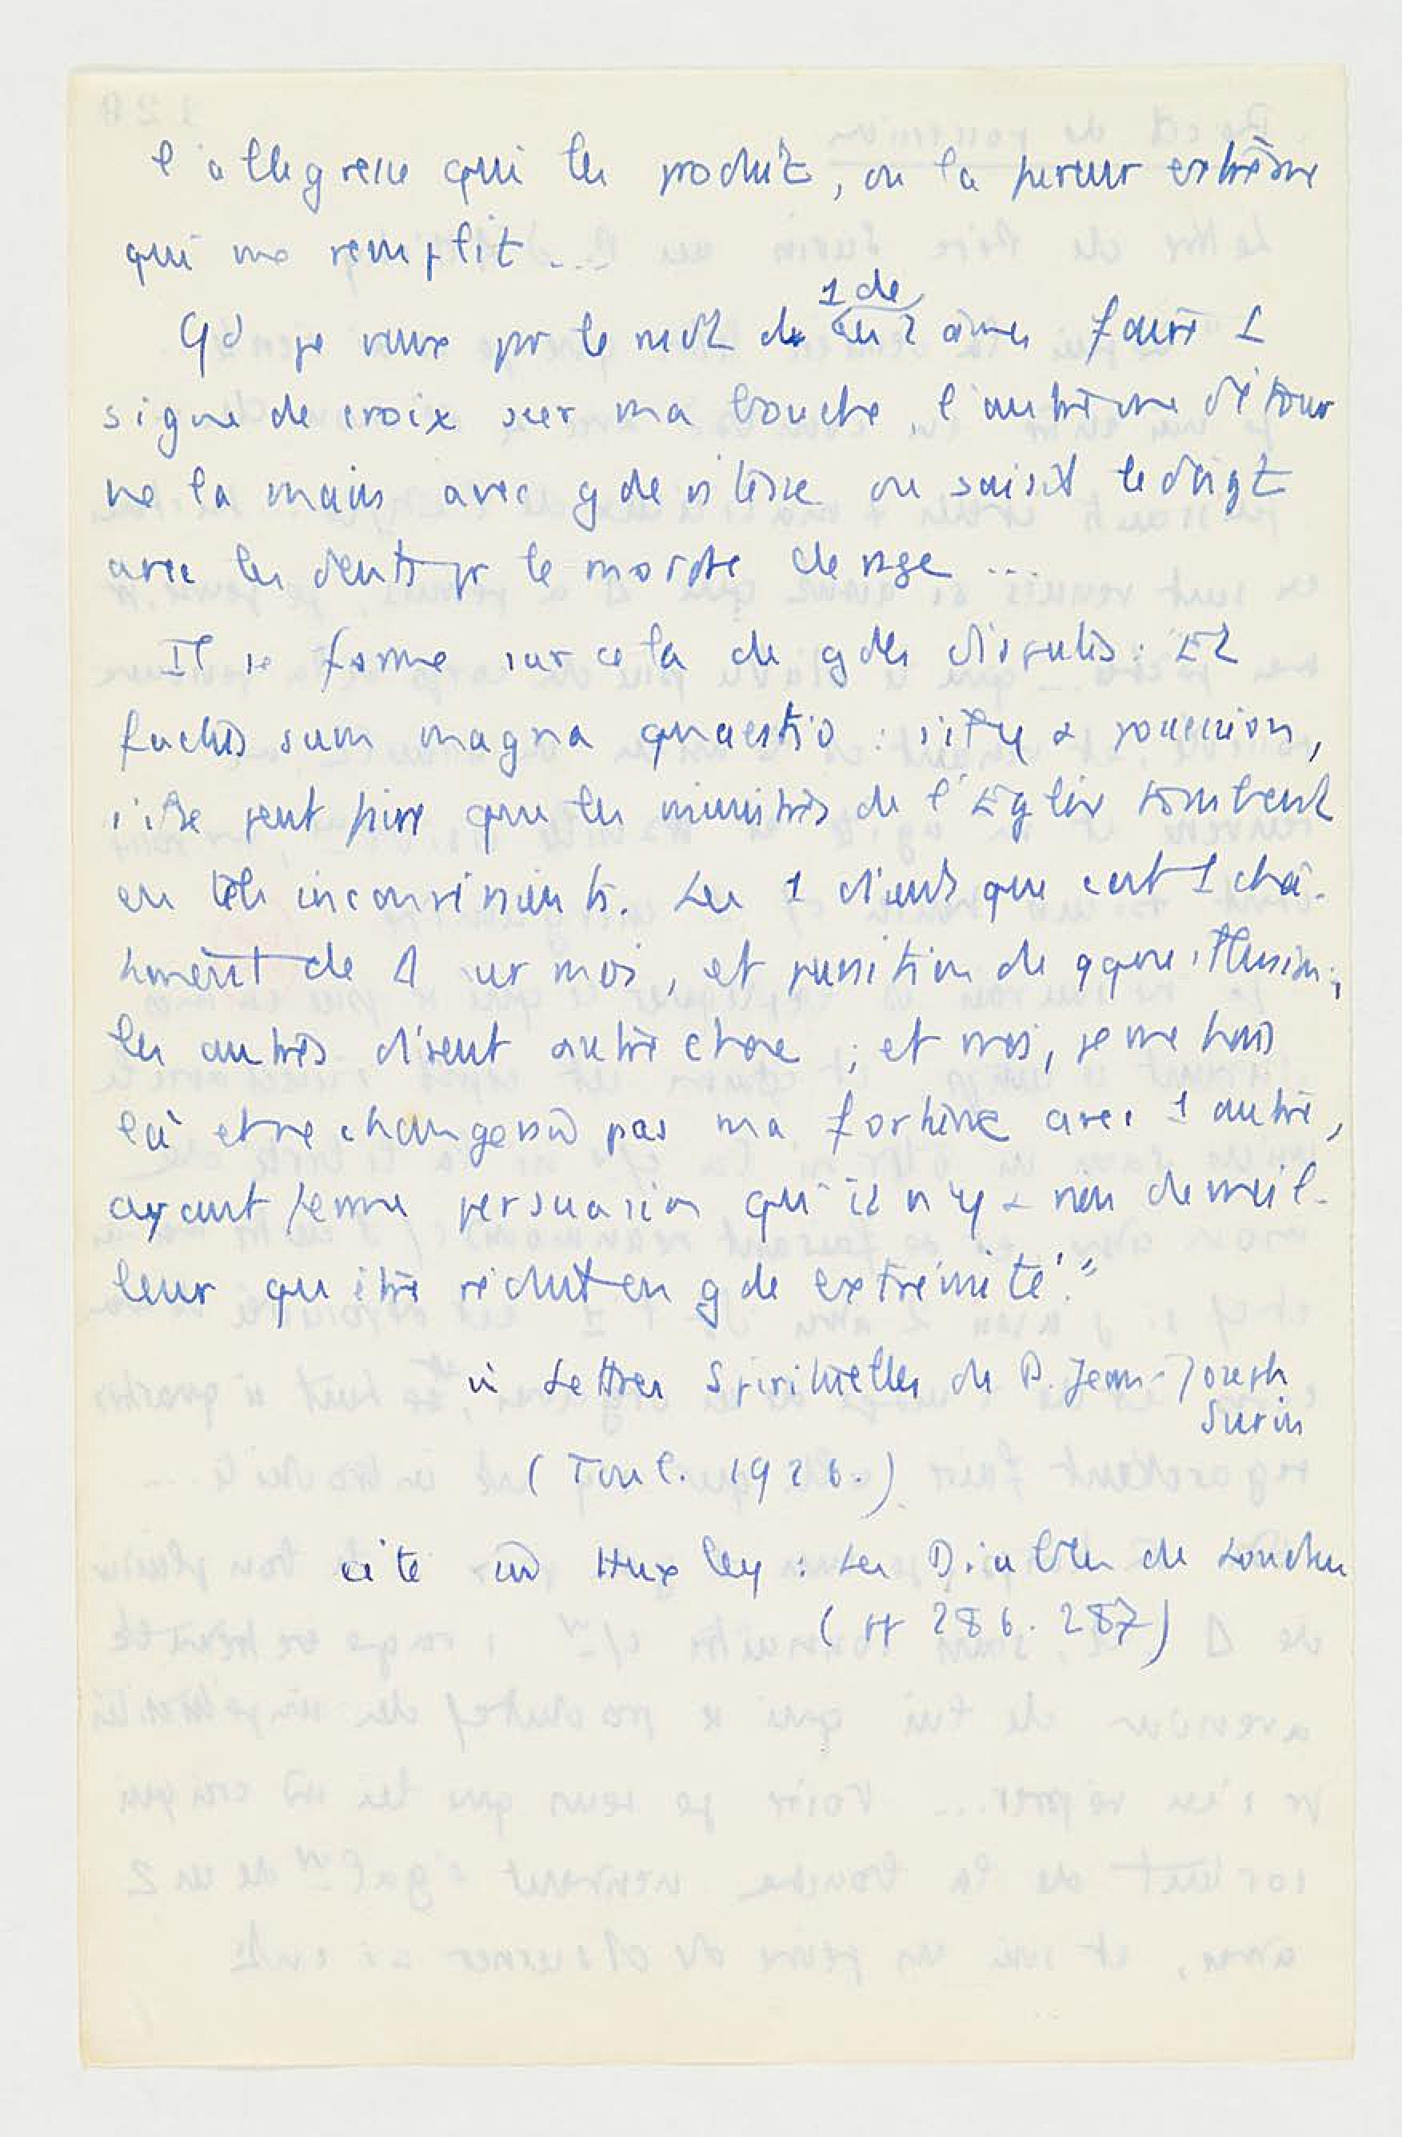 l'allegresse qui les produit, ou la fureur extrême
qui me remplit...
Qd je veux par le mvt de 1 de ces 2 âmes faire 1
signe de croix sur ma bouche, l'autre me détour
ne la main avec gde vitesse ou saisit le doigt
avec les dents pr le mordre de rage...
Il se forme sur cela de gdes disputes : Et
factus sum magna quaestio : s'il y a possession,
s'il se peut faire que les ministres de l'Eglise tombent
en tels inconvénients. Les 1 disent que c'est 1 châ-
timent de Δ sur moi, et punition de qque illusion ;
les autres disent autre chose ; et moi, je me tiens
là et ne changerais pas ma fortune avec 1 autre,
ayant ferme persuasion qu'il n'y a rien de meil-
leur qu'être réduit en gde extrémité."
in Lettres Spirituelles du P. Jean-Joseph
Surin
(Toul. 1926.)
cité in Huxley : Les Diables de Loudun
(286. 287)